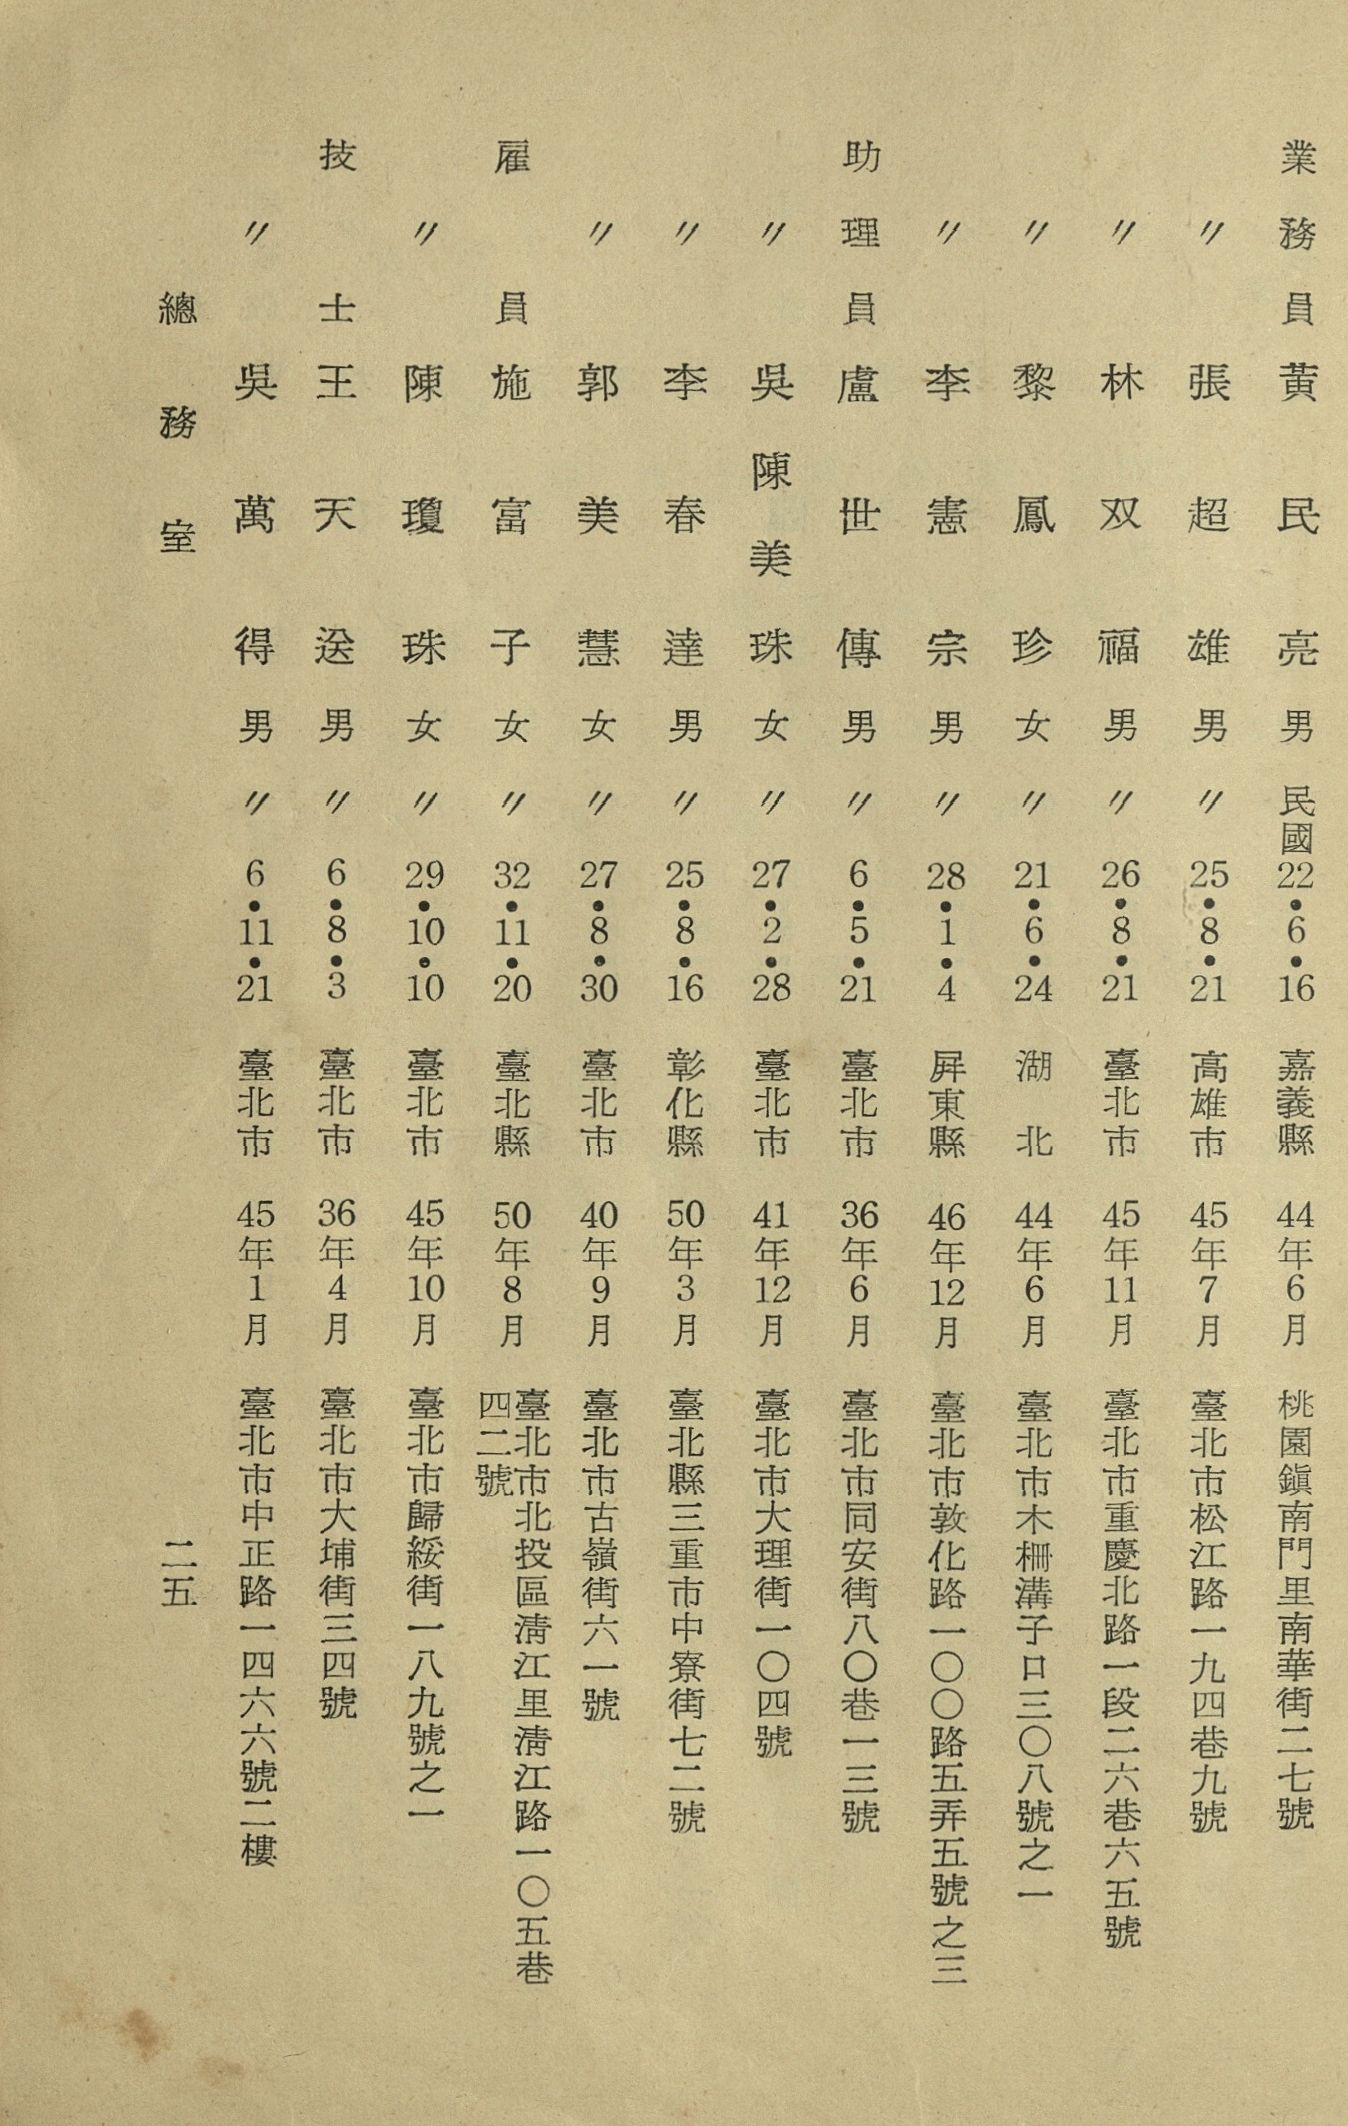 業務員 黃民亮 男 民國22•6•16 嘉義縣 44年6月 桃園鎮南門里南華街二七號
〃 張超雄 男 〃 25•8•21 高雄市 45年7月 臺北市松江路一九四巷九號
〃 林双福 男 〃 26•8•21 臺北市 45年11月 臺北市重慶北路一段二六巷六五號
〃 黎鳳珍 女 〃 21•6•24 湖北 44年6月 臺北市木柵溝子口三〇八號之一
〃 李憲宗 男 〃 28•1•4 屏東縣 46年12月 臺北市敦化路一〇〇路五弄五號之三
助理員 盧世傳 男 〃 6•5•21 臺北市 36年6月 臺北市同安街八〇巷一三號
〃 吳陳美珠 女 〃 27•2•28 臺北市 41年12月 臺北市大理街一〇四號
〃 李春達 男 〃 25•8•16 彰化縣 50年3月 臺北縣三重市中寮街七二號
〃 郭美慧 女 〃 27•8•30 臺北市 40年9月 臺北市古嶺街六一號
雇員 施富子 女 〃 32•11•20 臺北縣 50年8月 臺北市北投區清江里清江路一〇五巷
四二號
〃 陳瓊珠 女 〃 29•10•10 臺北市 45年10月 臺北市歸綏街一八九號之一
技士 王天送 男 〃 6•8•3 臺北市 36年4月 臺北市大埔街三四號
〃 吳萬得 男 〃 6•11•21 臺北市 45年1月 臺北市中正路一四六六號二樓
總務室
二五